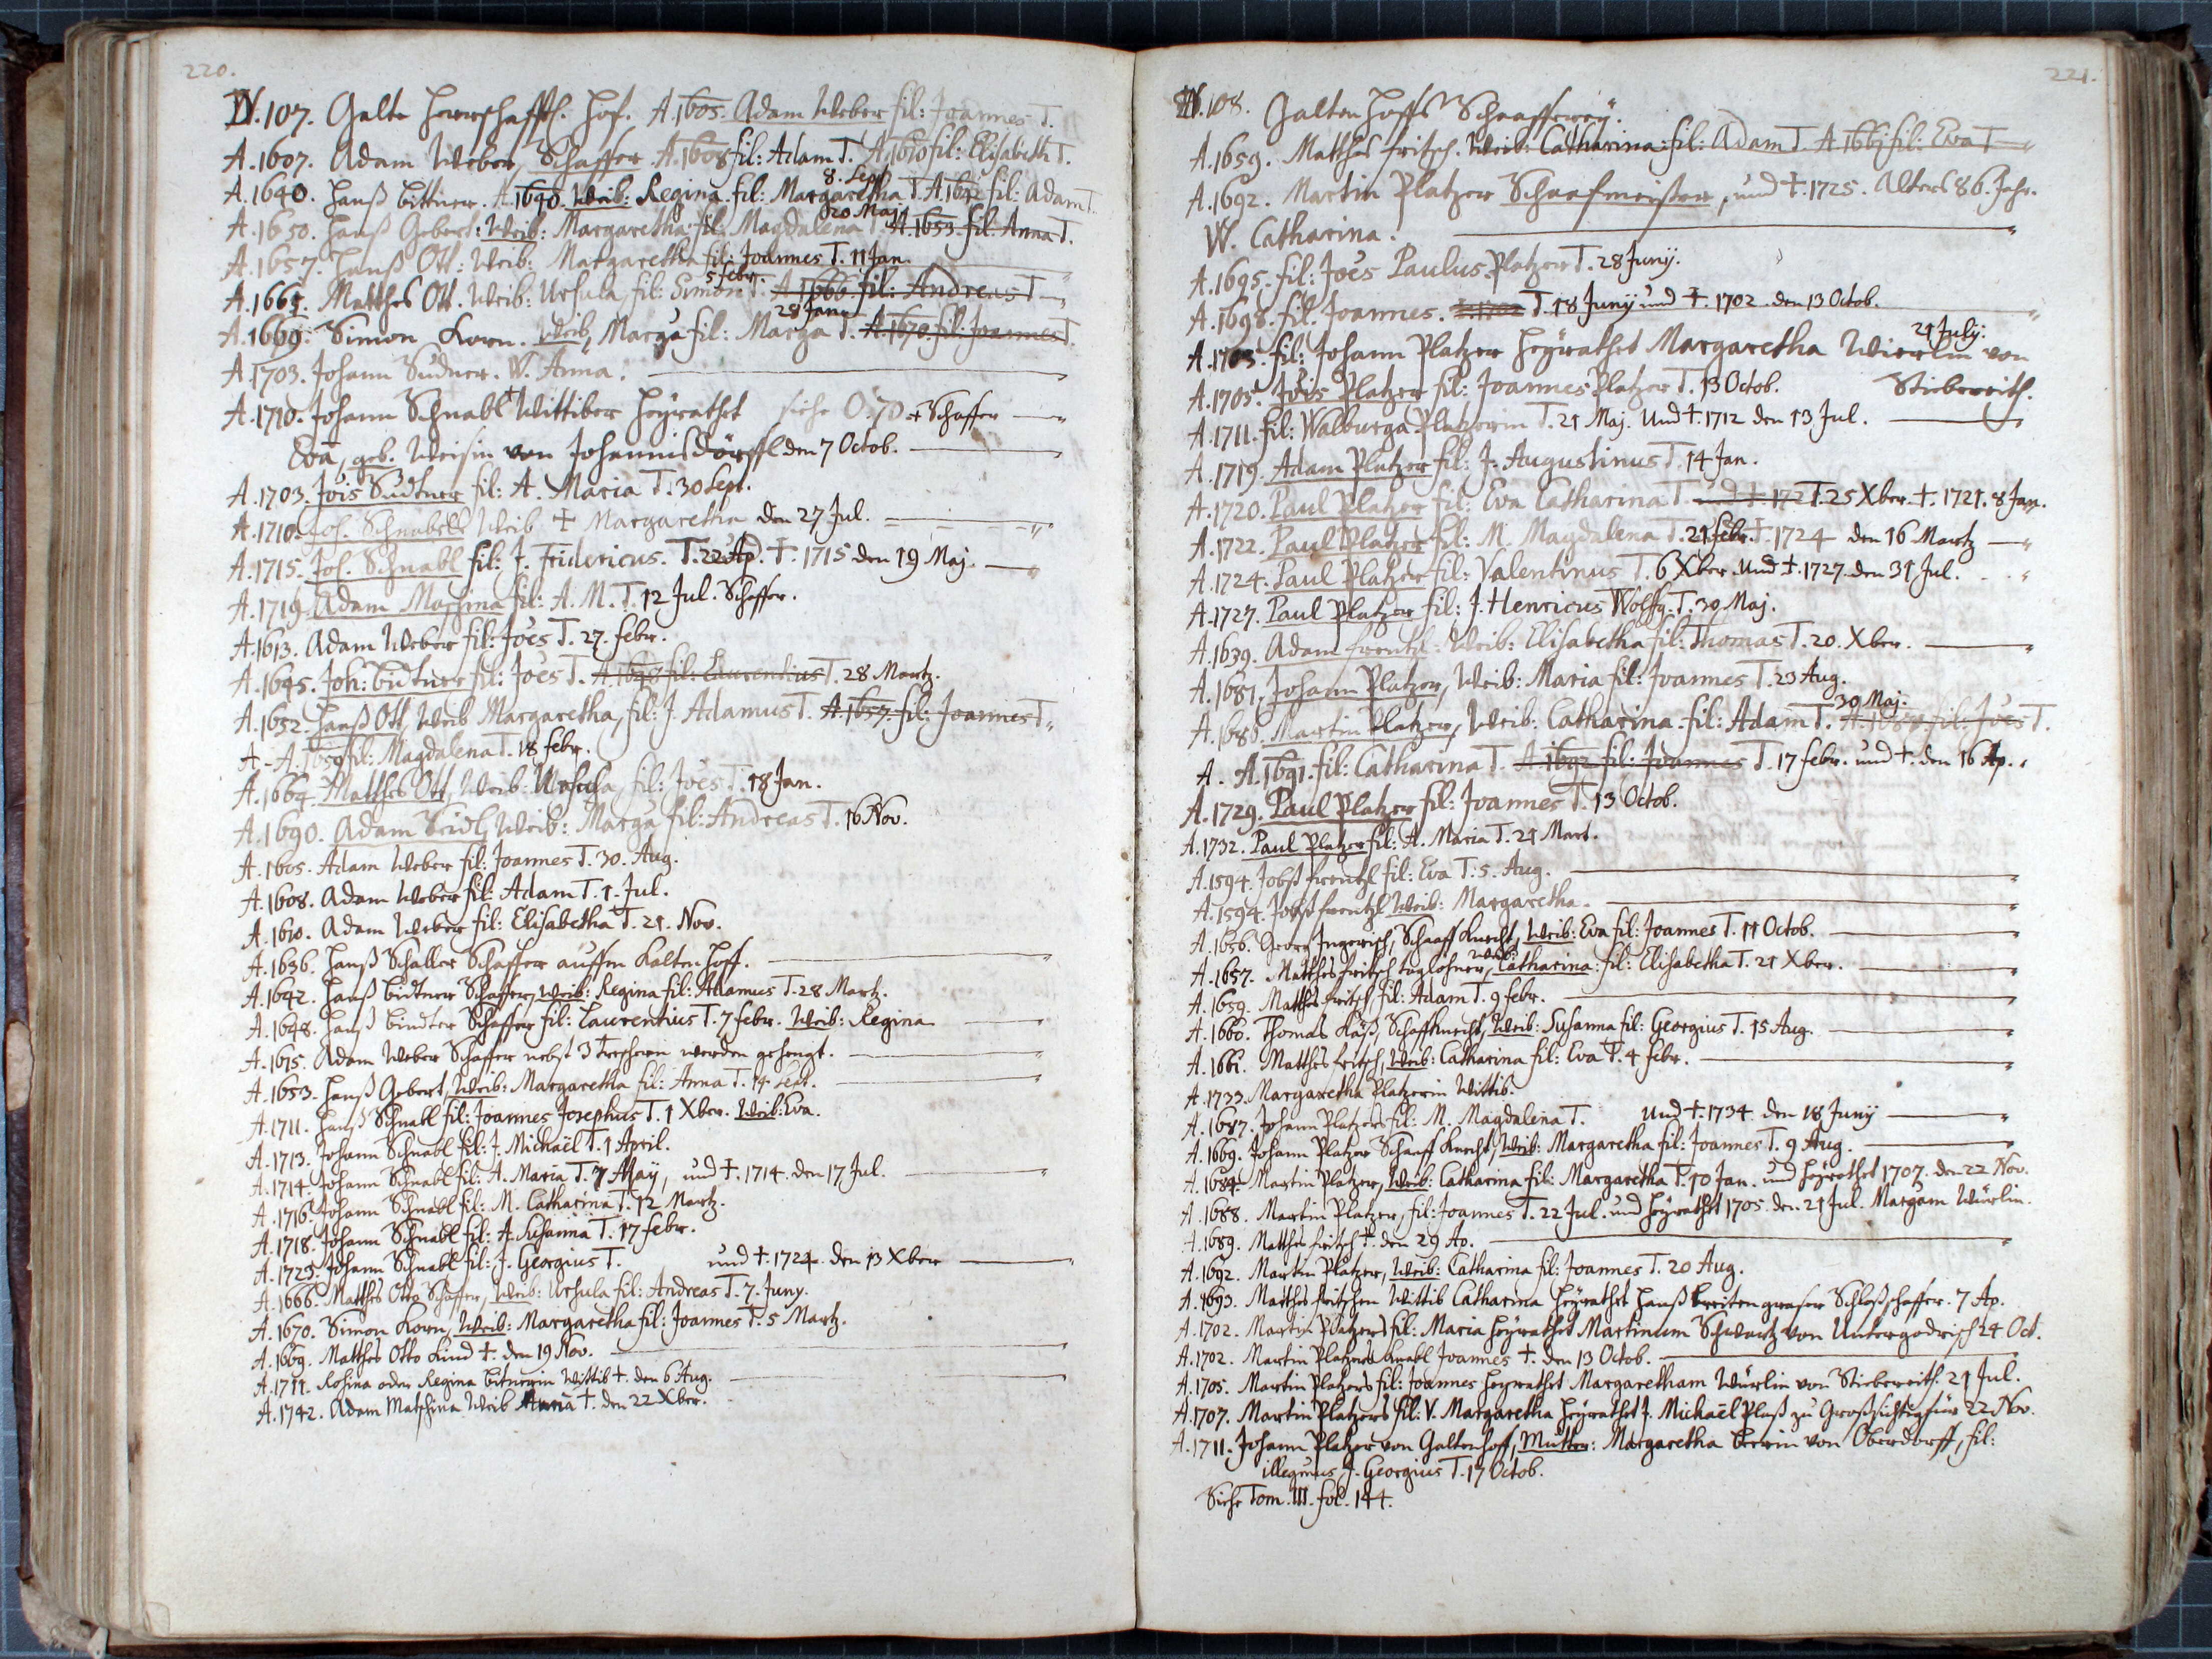 220.
W. 107. Galte Herrschafftl. Hof. A. 1605. Adam Weber fil: Joannes T.
A. 1607. Adam Weber, Schaffer A. 1608 fil: Adam T. A. 1610 fil: Elisabeth T.
8. Sept.
A. 1640. Hanß Bittner. A. 1640. Weib: Regina fil: Margaretha T. A. 1642 fil: Adam T.
20 Maj.
A. 1650. Hanß Gebert: Weib: Margaretha fil: Magdalena T. A. 1653. fil: Anna T.
A. 1657. Hanß Ott: Weib: Margaretha fil: Joannes T. 11 Jan.
5 febr.
A. 1664. Matthes Ott. Weib: Ursula, fil: Simon T. A. 1666. fil: Andreas T.
28 Jan.
A. 1669. Simon Korn. Weib, Marga fil: Marga T. A. 1670. fil: Joannes T.
A. 1703. Johann Sudner. W. Anna.
A. 1710. Johann Schnabl Wittiber heyrathet siehe O. 70. + Schaffer
Eva, geb. Weisin von Johannisdörffl den 7 Octob.
A. 1703. Jois Sudtner fil: A. Maria T. 30 Sept.
A. 1710. Joh. Schnabels Weib + Margaretha den 27 Jul.
A. 1715. Joh. Schnabl fil: J. Fridericus. T. 22 Ap. +. 1715 den 19 Maj.
A. 1719. Adam Maschina fil: A. M. T. 12 Jul. Schaffer.
A. 1613. Adam Weber fil: Joes T. 27. febr.
A. 1645. Joh: Bütner fil: Joes T. A. 1648 fil: Laurentius T. 28 Martz.
A. 1652. Hanß Ott, Weib Margaretha, fil: J. Adamus T. A. 1657. fil: Joannes T.
A. - A. 1659 fil: Magdalena T. 18 febr.
A. 1664. Matthes Ott, Weib: Ursula, fil: Joes T. 18 Jan.
A. 1690. Adam Seidl, Weib: Marga fil: Andreas T. 16 Nov.
A. 1605. Adam Weber fil: Joannes T. 30. Aug.
A. 1608. Adam Weber fil: Adam T. 1. Jul.
A. 1610. Adam Weber fil: Elisabetha T. 21. Nov.
A. 1636. Hanß Schaller Schaffer auffm Kaltenhoff.
A. 1642. Hanß Bidtner Schaffer, Weib: Regina fil: Adamus T. 28 Martz.
A. 1648. Hanß Bindter Schaffer fil: Laurentius T. 7 febr. Weib: Regina
A. 1615. Adam Weber Schaffer nebst 3 Treschern werden gehengt.
A. 1653. Hanß Gebert, Weib: Margaretha fil: Anna T. 14 Sept.
A. 1711. Hanß Schnabl fil: Joannes Josephus T. 1 Xber. Weib: Eva.
A. 1713. Johann Schnabl fil: J. Michaël T. 1 April.
A. 1714. Johann Schnabl fil: A. Maria T. 7 May, und +. 1714. den 17 Jul.
A. 1716. Johann Schnabl fil: M. Catharina T. 12 Martz.
A. 1718. Johann Schnabl fil: A. Susanna T. 17 febr.
A. 1723. Johann Schnabl fil: J. Georgius T. und + 1724. den 13 Xber
A. 1666. Matthes Otto Schaffer, Weib: Ursula fil: Andreas T. 7. Juny.
A. 1670. Simon Korn, Weib: Margaretha fil: Joannes T. 5 Martz.
A. 1669. Matthes Otto Kind +. den 19 Nov.
A. 1711. Rosina oder Regina Bitnerin Wittib +. den 6 Aug.
A. 1742. Adam Matschina Weib Anna +. den 22 Xber.
221.
W. 108. Galtenhoffs Schaafferey.
A. 1659. Matthes Fritsch. Weib: Catharina: fil: Adam T. A. 1661 fil: Eva T
A. 1692. Martin Platzer Schaafmeister, und +. 1725. Alters 86. Jahr.
W. Catharina.
A. 1695. fil: Joes Paulus Platzer T. 28 Juny.
A. 1698. fil. Joannes. T. 18 Juny und +. 1702. den 13 Octob.
21 July.
A. 1705. fil: Johann Platzer heyrathet Margaretha Würlin von
A. 1705. Jois Platzer fil: Joannes Platzer T. 13 Octob. Stiebereith.
A. 1711. fil: Walburga Platzerin T. 21 Maj. und + 1712 den 13 Jul.
A. 1719. Adam Platzer fil: J. Augustinus T. 14 Jan.
A. 1720. Paul Platzer fil: Eva Catharina T. und +. 1721 T. 25 Xber. +. 1721. 8 Jan.
A. 1722. Paul Platzer fil: M. Magdalena T. 21 febr. +. 1724 den 16 Martz
A. 1724. Paul Platzer fil: Valentinus T. 6 Xber. und +. 1727. den 31 Jul.
A. 1727. Paul Platzer fil: J. Henricus Wolffg. T. 30 Maj.
A. 1639. Adam Frentzl: Weib: Elisabetha fil: Thomas T. 20. Xber.
A. 1681. Johann Platzer, Weib: Maria fil: Joannes T. 23 Aug.
30 Maj.
A. 1686. Martin Platzer, Weib: Catharina fil: Adam T. A. 1689 fil: Joes T.
A. A. 1691. fil: Catharina T. A. 1692 fil: Joannes T. 17 febr. und +. den 16 Ap.
A. 1729. Paul Platzer fil: Joannes T. 13 Octob.
A. 1732. Paul Platzer fil: A. Maria T. 21 Mart.
A. 1594. Jobst Frentzl fil: Eva T. 5. Aug.
A. 1594. Jobst Frentzl Weib: Margaretha.
A. 1656. Georg Ingerisch, Schaaff Knecht, Weib: Eva fil: Joannes T. 11 Octob.
Weib:
A. 1657. Matthes Fritsch taglöhner, Catharina: fil: Elisabetha T. 21 Xber.
A. 1659. Matthes Fritsch, fil: Adam T. 9 febr.
A. 1660. Thomas Käß, Schaffknecht, Weib: Susanna fil: Georgius T. 15 Aug.
A. 1661. Matthes Fritsch, Weib: Catharina fil: Eva T. 4 febr.
A. 1733. Margaretha Platzerin Wittib.
A. 1687. Johann Platzers fil: M. Magdalena T. und +. 1734. den 18 Juny
A. 1669. Johann Platzer Schaaff Knecht, Weib: Margaretha fil: Joannes T. 9 Aug.
A. 1684. Martin Platzer, Weib: Catharina fil: Margaretha T. 10 Jan. und heyrathet 1707. den 22 Nov.
A. 1688. Martin Platzer, fil: Joannes T. 22 Jul. und heyrathet 1705. den 21 Jul. Margam Würlin.
A. 1689. Matthes Fritsch +. den 29 Ap.
A. 1692. Martin Platzer, Weib: Catharina fil: Joannes T. 20 Aug.
A. 1693. Matthes Fritschen Wittib Catharina heyrathet Hanß Breitengraser Schloßschaffer. 7 Ap.
A. 1702. Martin Platzers fil: Maria heyrathet Martinum Schwartz von Untergodrisch 24 Oct.
A. 1702. Martin Platzers Knabl Joannes +. den 13 Octob.
A. 1705. Martin Platzers fil: Joannes heyrathet Margaretham Würlin von Stiebereith. 21 Jul.
A. 1707. Martin Platzers fil: V. Margaretha heyrathet J. Michaël Plaß zu 22 Nov.
A. 1711. Johann Platzer von Galtenhoff, Mutter: Margaretha Beerin von Oberdorff, fil:
illegimus, J. Georgius T. 17 Octob.
Siehe Tom. III. fol. 144.